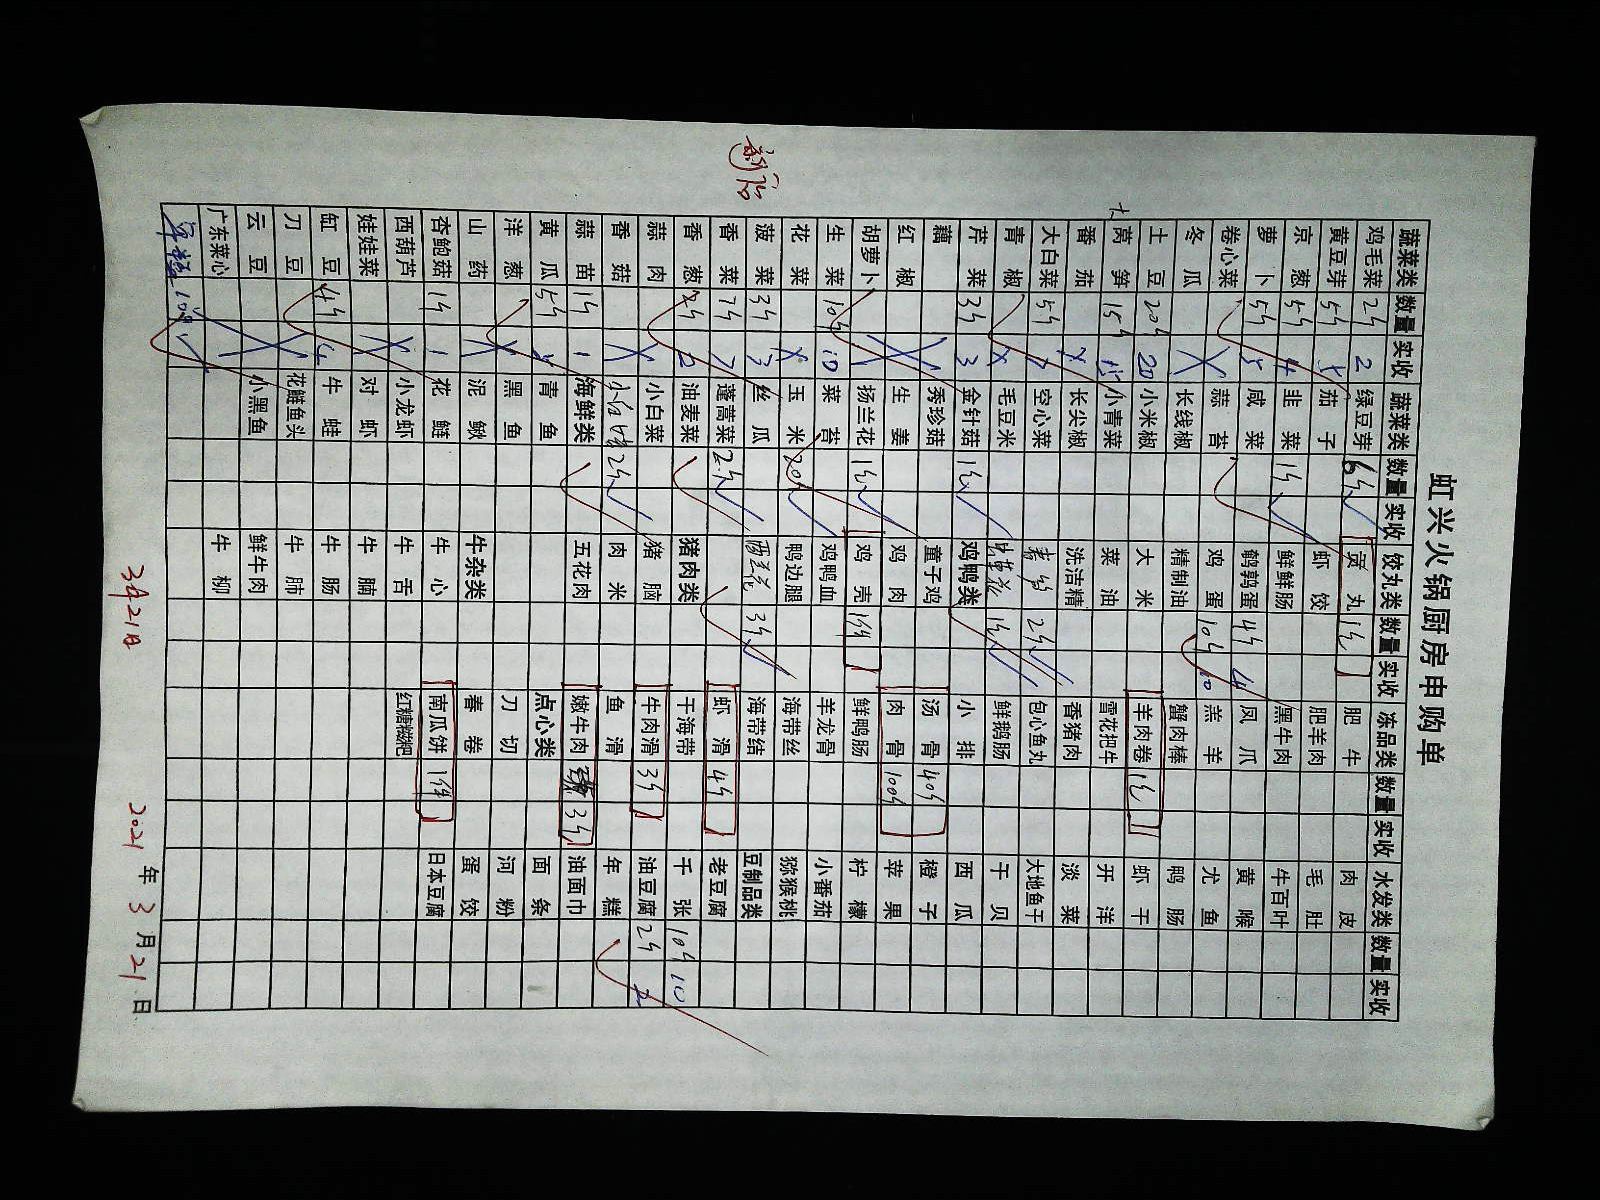 虹兴火锅厨房申购单
新店
蔬菜类 数量 实收 蔬菜类 数量 实收 饺丸类 数量 实收 冻品类 数量 实收 水发类 数量 实收
鸡毛菜 2斤 2 绿豆芽 6斤 贡丸 1包 肥牛 肉皮
黄豆芽 5斤 5 茄子 虾饺 肥羊肉 毛肚
京葱 5斤 4 韭菜 1斤 鲜鲜肠 黑牛肉 牛百叶
萝卜 5斤 5 咸菜 鹌鹑蛋 4斤 4 凤爪 黄喉
卷心菜 蒜苔 鸡蛋 10斤 10 羔羊 尤鱼
冬瓜 长线椒 精制油 蟹肉棒 鸭肠
土豆 20斤 20 小米椒 大米 羊肉卷 1包 虾干
大 莴笋 15斤 15 小青菜 菜油 雪花把牛 开洋
番茄 长尖椒 洗洁精 香猪肉 淡菜
大白菜 5斤 空心菜 2斤 包心鱼丸 大地鱼干
青椒 毛豆米 1包 鲜鹅肠 干贝
芹菜 3斤 3 金针菇 1包 鸡鸭类 小排 西瓜
藕 秀珍菇 童子鸡 汤骨 40斤 橙子
红椒 生姜 鸡肉 肉骨 100斤 苹果
胡萝卜 扬兰花 1包 鸡壳 1件 鲜鸭肠 柠檬
生菜 10斤 10 菜苔 鸡鸭血 羊龙骨 小番茄
花菜 玉米 20斤 鸭边腿 海带丝 猕猴桃
菠菜 3斤 3 丝瓜 西兰花 3斤 海带结 豆制品类
香菜 7斤 7 蓬蒿菜 2斤 虾滑 4斤 老豆腐
香葱 2斤 2 油麦菜 猪肉类 干海带 千张 10斤 10
蒜肉 小白菜 猪脑 牛肉滑 3斤 油豆腐 2斤 2
香菇 2斤 肉米 鱼滑 年糕
蒜苗 1斤 1 海鲜类 五花肉 嫩牛肉 3斤 油面巾
黄瓜 5斤 青鱼 点心类 面条
洋葱 黑鱼 刀切 河粉
山药 泥鳅 牛杂类 春卷 蛋饺
杏鲍菇 1斤 1 花鲢 牛心 南瓜饼 1件 日本豆腐
西葫芦 小龙虾 牛舌 红糖糍粑
娃娃菜 对虾 牛腩
缸豆 4斤 4 牛蛙 牛肠
刀豆 花鲢鱼头 牛肺
云豆 小黑鱼 鲜牛肉
广东菜心 牛柳
3月21日 2021年3月21日